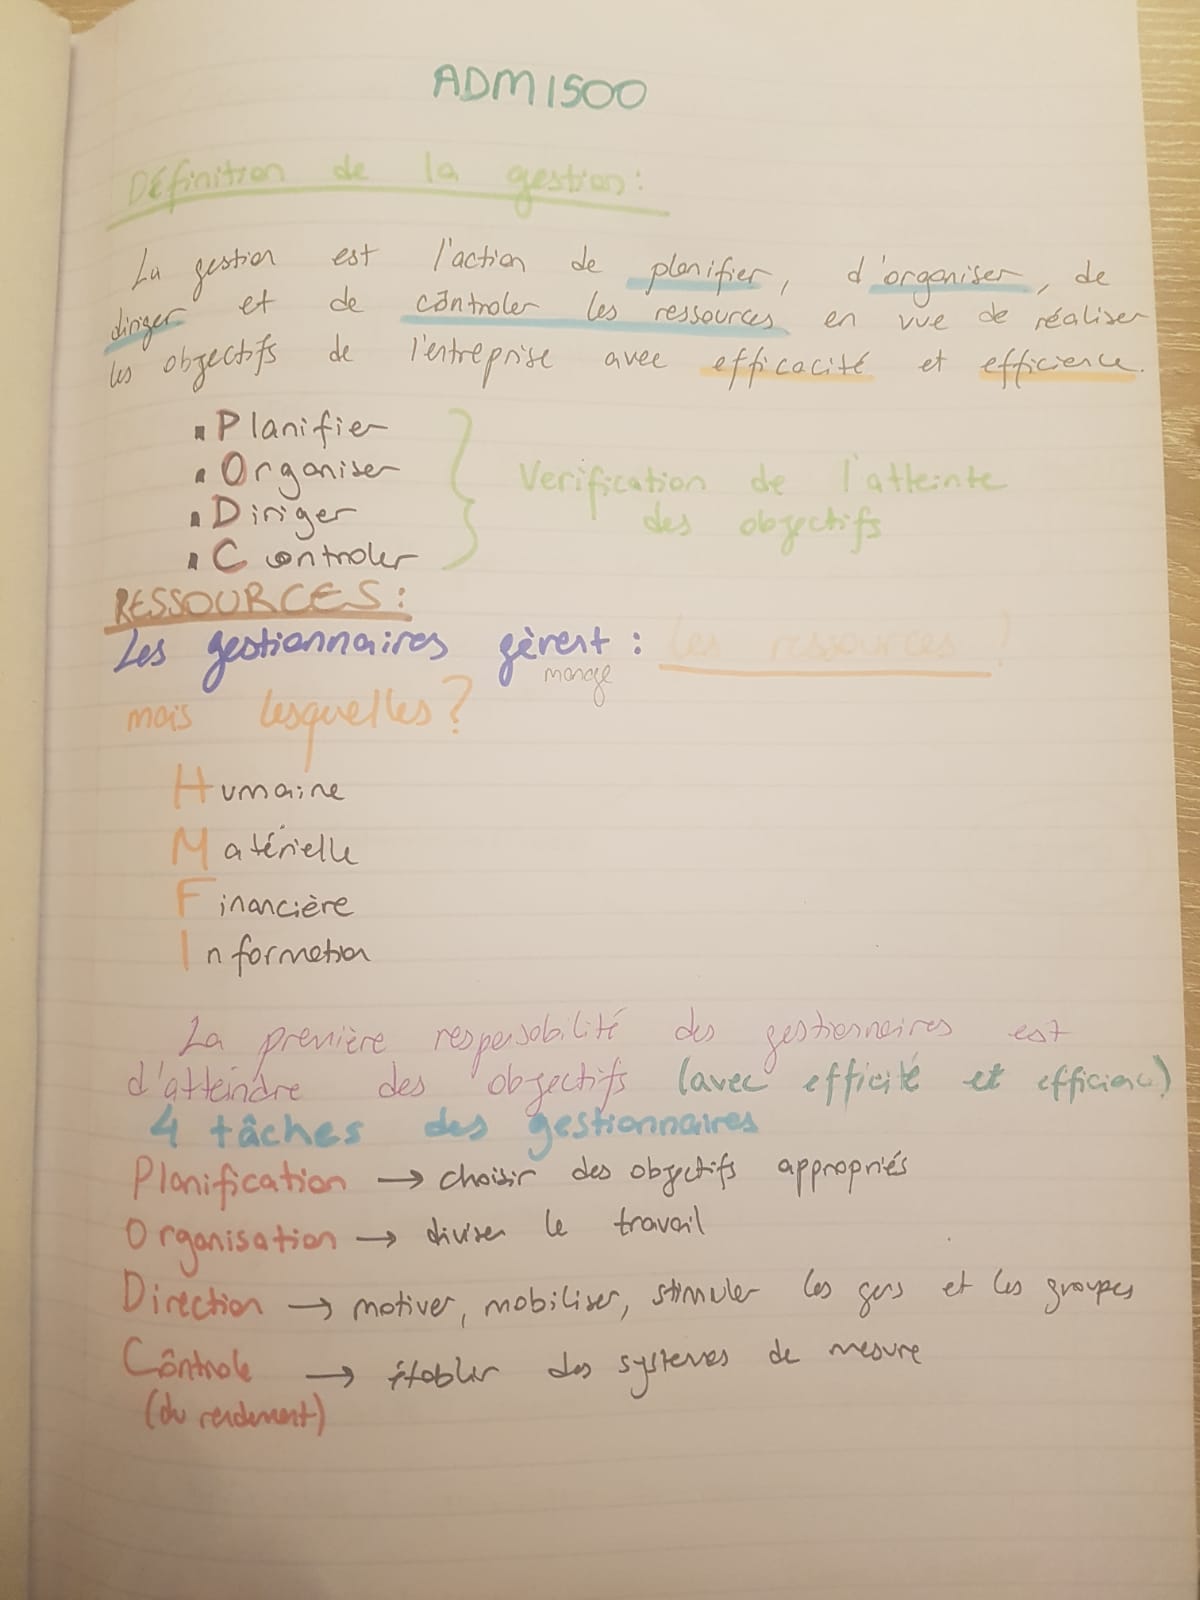 ADM1500
Définition de la gestion:
La gestion est l'action de planifier, d'organiser, de
diriger et de contrôler les ressources en vue de réaliser
les objectifs de l'entreprise avec efficacité et efficience.
▪ Planifier
▪ Organiser
▪ Diriger
▪ Controler
Verification de l'atteinte
des objectifs
RESSOURCES:
Les gestionnaires gèrent: les ressources?
manage
mais lesquelles?
Humaine
Matérielle
Financière
Information
La première responsabilité des gestionnaires est
d'atteindre des objectifs (avec efficité et efficience)
4 tâches des gestionnaires
Planification → choisir des objectifs appropriés
Organisation → diviser le travail
Direction → motiver, mobiliser, stimuler les gens et les groupes
Côntrole → établir des systemes de mesure
(du rendement)